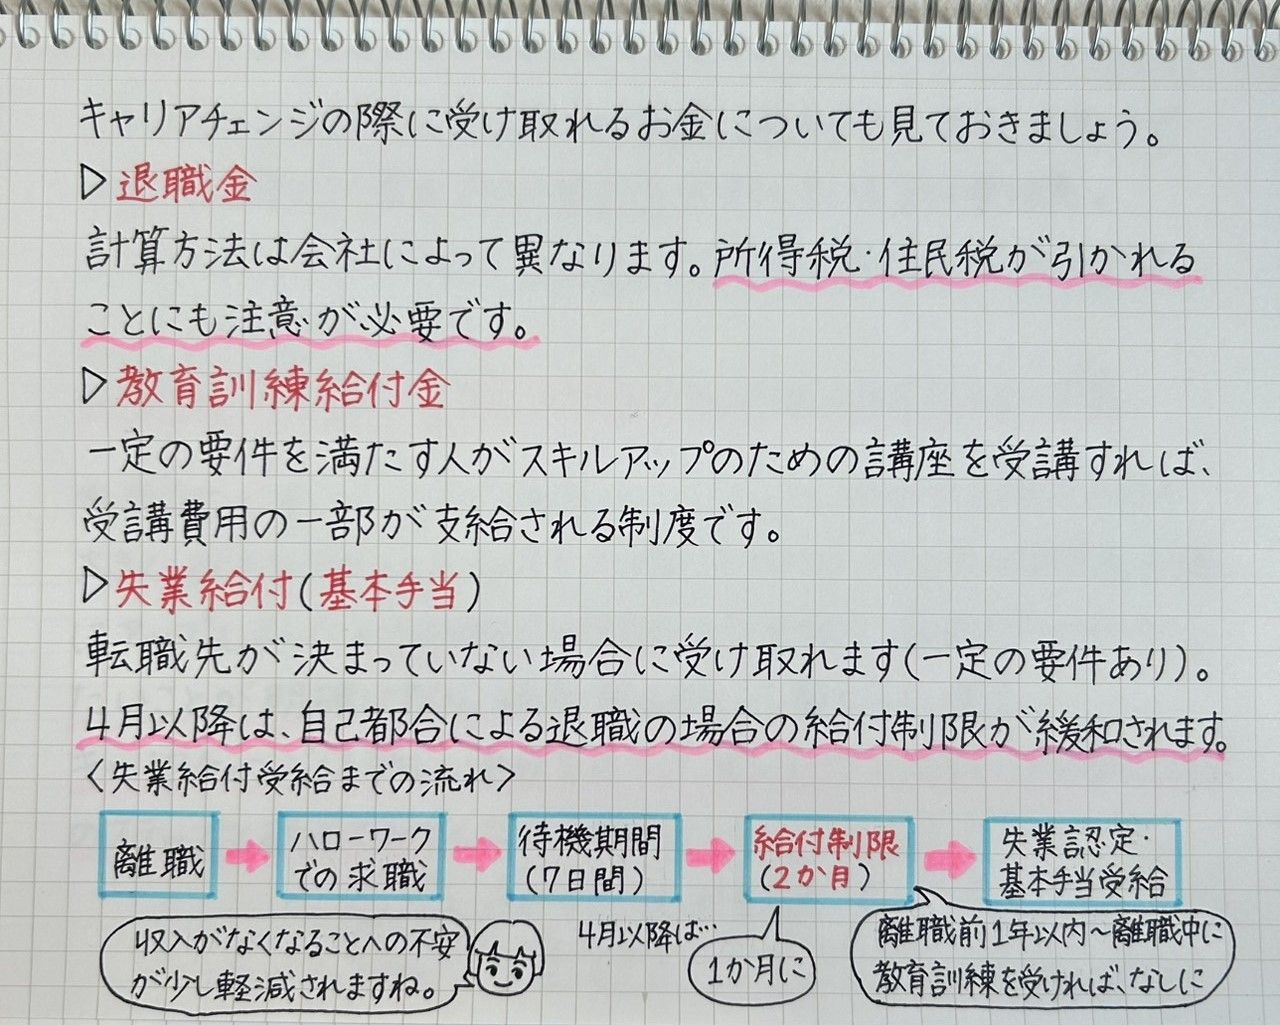 キャリアチェンジの際に受け取れるお金についても見ておきましょう。
▷退職金
計算方法は会社によって異なります。所得税・住民税が引かれる
ことにも注意が必要です。
▷教育訓練給付金
一定の要件を満たす人がスキルアップのための講座を受講すれば、
受講費用の一部が支給される制度です。
▷失業給付(基本手当)
転職先が決まっていない場合に受け取れます(一定の要件あり)。
4月以降は、自己都合による退職の場合の給付制限が緩和されます。
〈失業給付受給までの流れ〉
離職
ハローワーク
での求職
待機期間
(7日間)
給付制限
(2か月)
失業認定・
基本手当受給
収入がなくなることへの不安
が少し軽減されますね。
4月以降は…
1か月に
離職前1年以内~離職中に
教育訓練を受ければ、なしに